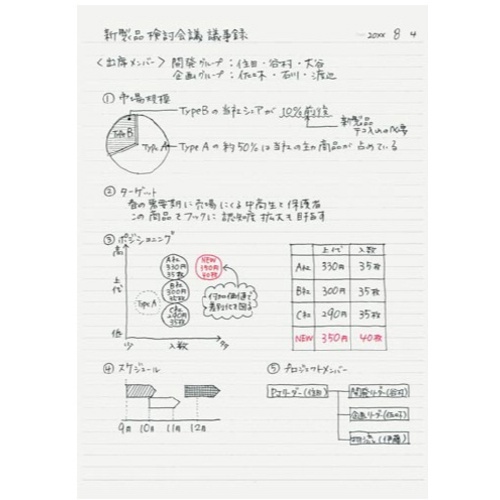 新製品検討会議 議事録
20XX 8 4
〈出席メンバー〉 開発グループ：住田・谷村・大谷
企画グループ：佐々木・石川・渡辺
① 市場規模
TypeBの当社シェアが10%前後
新製品
TypeB
TypeA
TypeAの約50%は当社の主力商品が占めている
② ターゲット
春の需要期に売場にくる中高生と保護者
この商品でフックに認知度拡大も目指す
③ ポジショニング
高
上代
低
少
入数
多
A社
330円
35枚
NEW
350円
40枚
B社
300円
35枚
C社
290円
35枚
TypeA
付加価値で
差別化を図る
上代 入数
A社 330円 35枚
B社 300円 35枚
C社 290円 35枚
NEW 350円 40枚
④ スケジュール
9月 10月 11月 12月
⑤ プロジェクトメンバー
リーダー(住田)
開発リーダー(谷村)
企画リーダー(佐々木)
物流(伊藤)